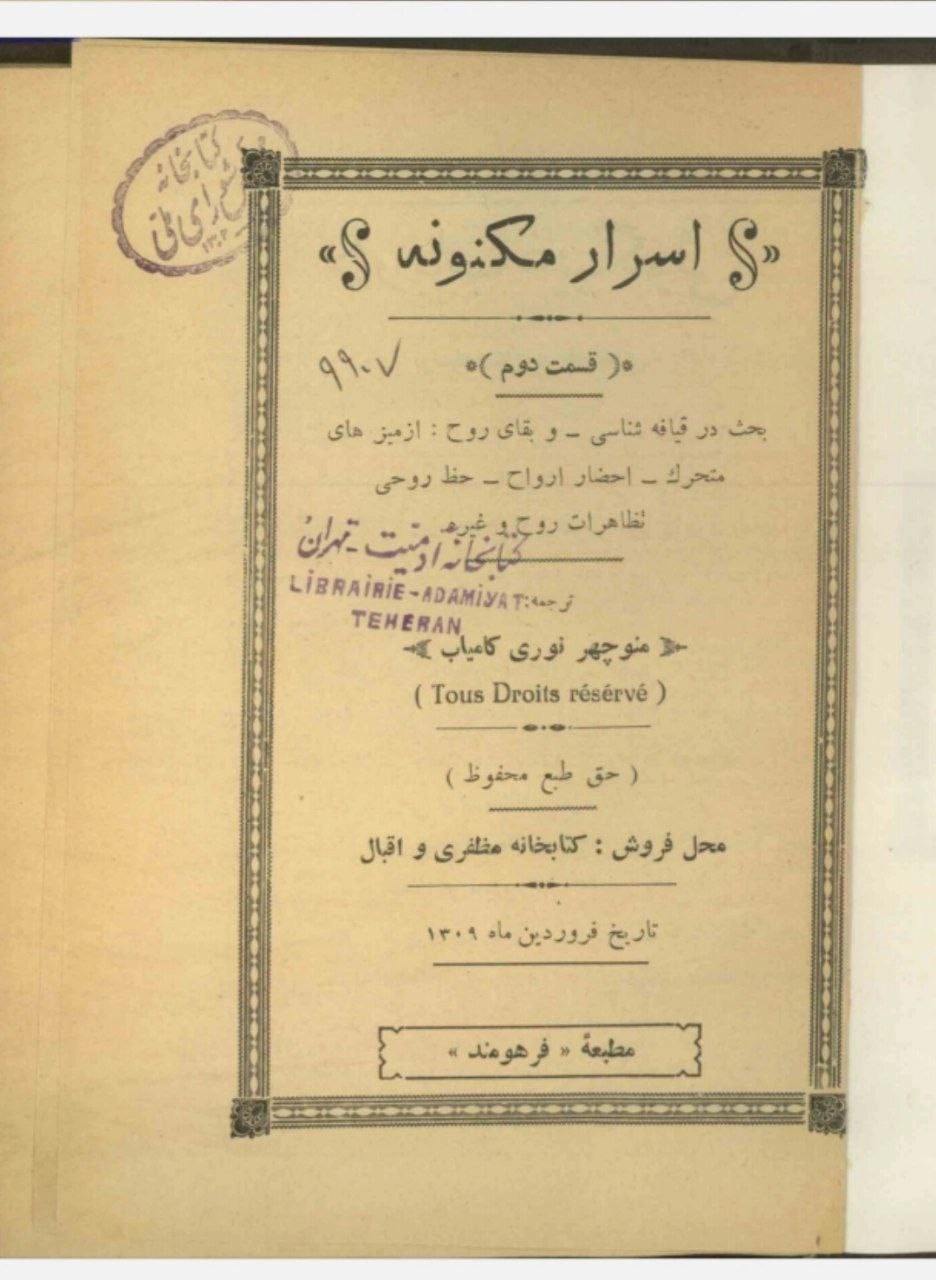 کتابخانه
شورای ملی
۱۳۰۲
« اسرار مکنونه »
*( قسمت دوم )*
۹۹۰۷
بحث در قیافه شناسی ـ و بقای روح : ازمیز های
متحرك ـ احضار ارواح ـ حظ روحی
تظاهرات روح و غیره
کتابخانه ادمیت - تهران
LIBRAIRIE-ADAMIYAT
TEHERAN
ترجمه:
منوچهر نوری کامیاب
( Tous Droits résérvé )
( حق طبع محفوظ )
محل فروش : کتابخانه مظفری و اقبال
تاریخ فروردین ماه ۱۳۰۹
مطبعهٔ « فرهومند »